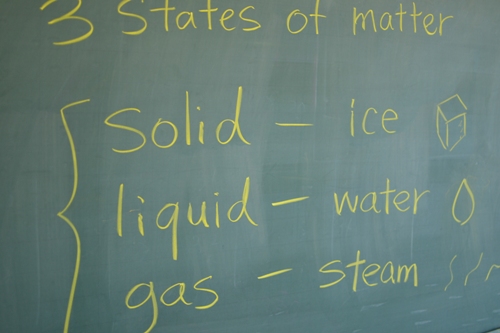 3 States of matter
Solid - ice
liquid - water
gas - steam